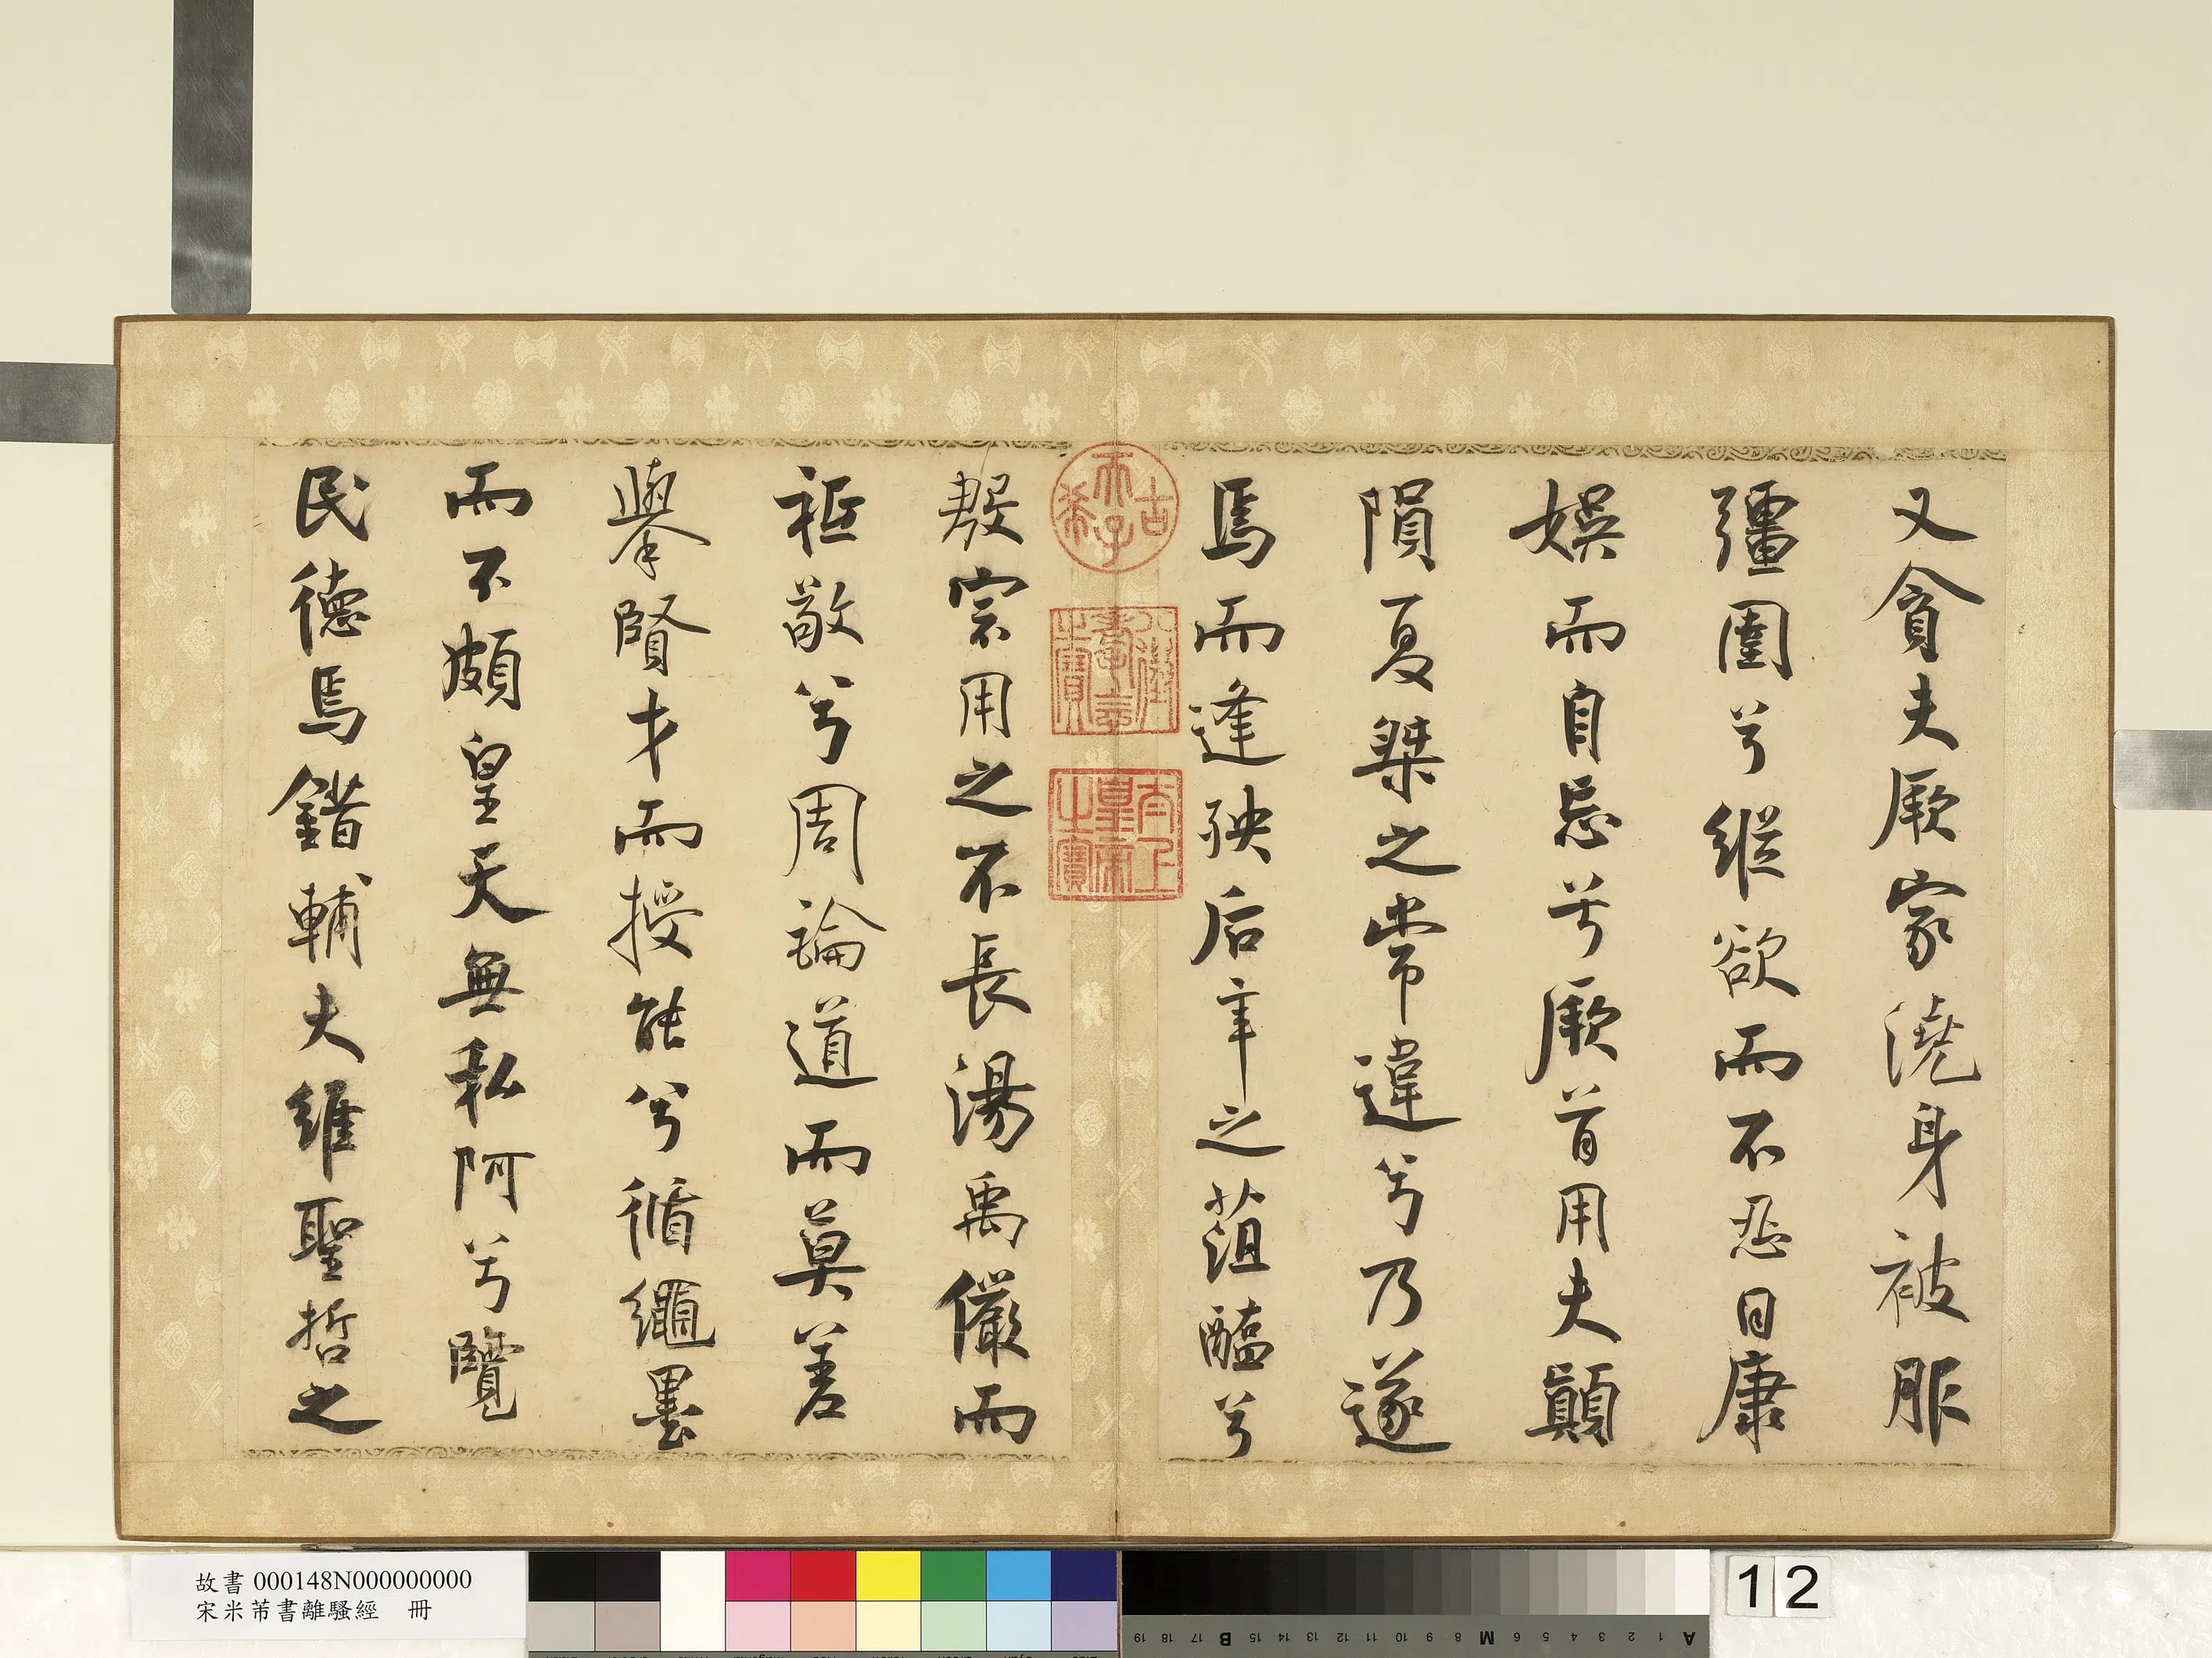 又貪夫厥家澆身被服
彊圉兮縱欲而不忍日康
娛而自忘兮厥首用夫顛
隕夏桀之常違兮乃遂
焉而逢殃后辛之菹醢兮
古希天子
八徵耄念之寶
太上皇帝之寶
殷宗用之不長湯禹儼而
祗敬兮周論道而莫差
舉賢才而授能兮循繩墨
而不頗皇天無私阿兮覽
民德焉錯輔夫維聖哲之
故書 000148N000000000
宋米芾書離騷經 冊
12
A 1 2 3 4 5 6 M 8 9 10 11 12 13 14 15 B 17 18 19